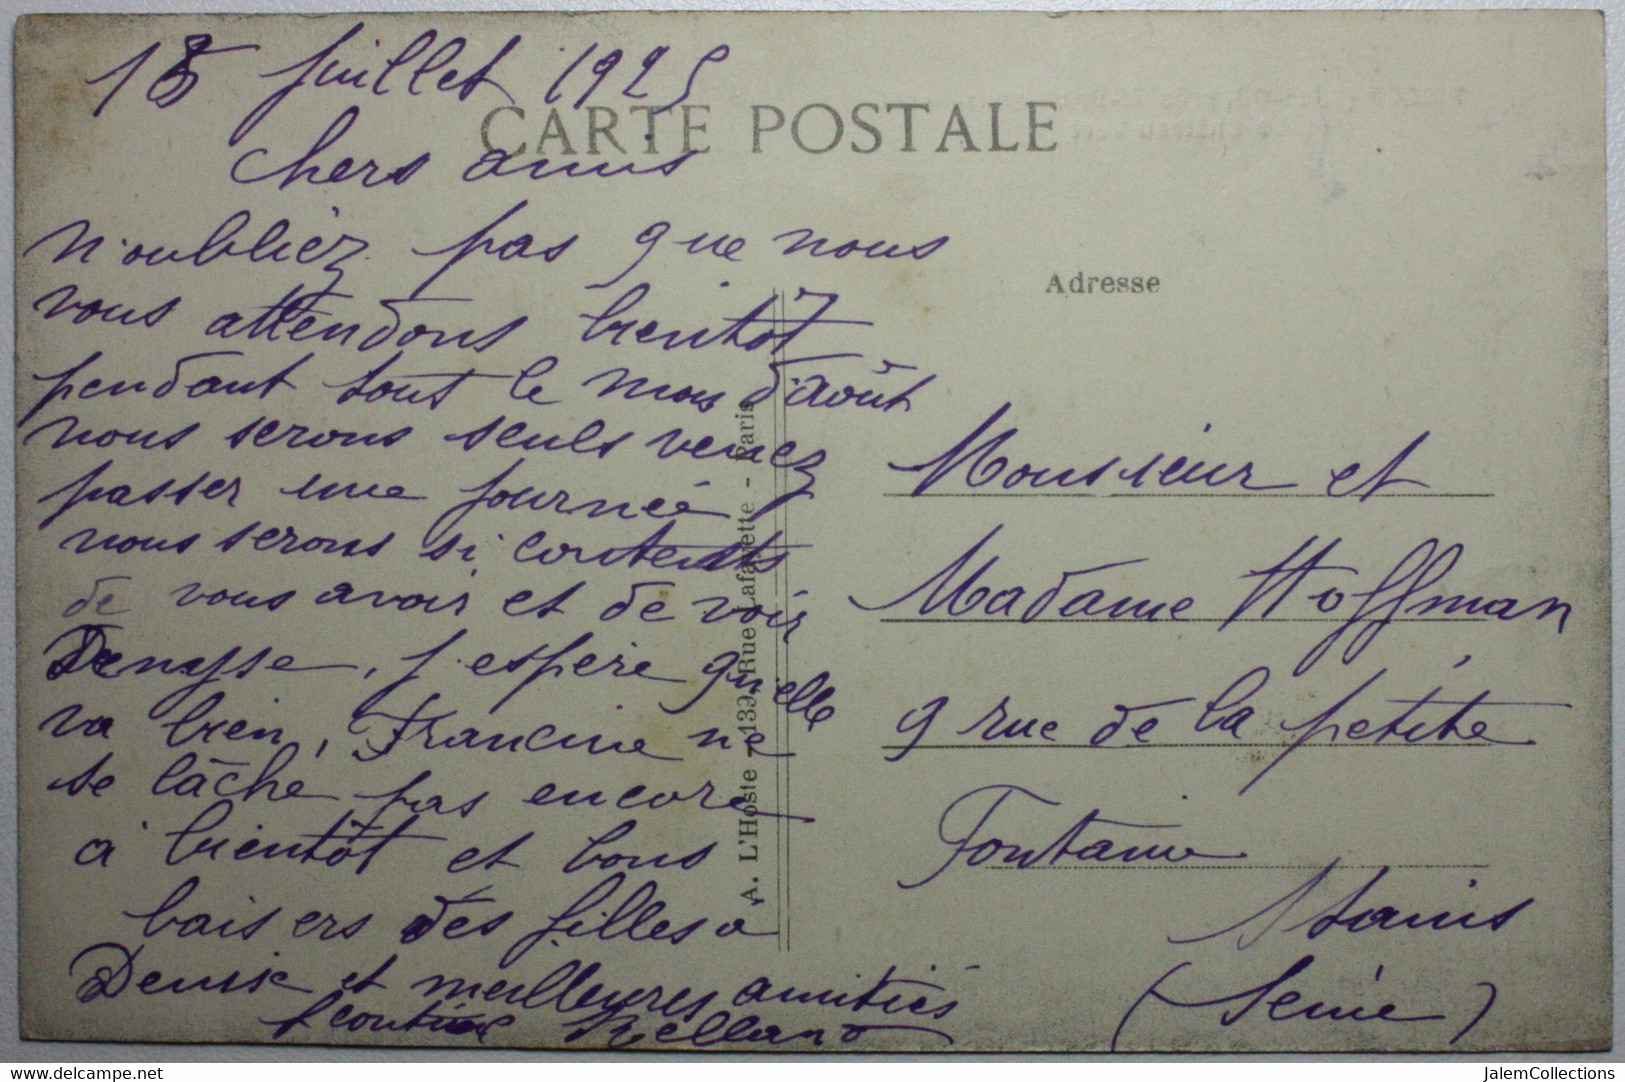 18 Juillet 1925
CARTE POSTALE
Chers amis
n'oubliez pas que nous
vous attendons bientôt
pendant tout le mois d'août
nous serons seuls venez
passer une journée
nous serons si contents
de vous avoir et de voir
Denyse, j'espère qu'elle
va bien, Francine ne
se lâche pas encore
à bientôt et bons
baisers des filles a
Denise et meilleures amitiés
Adresse
Monsieur et
Madame Hoffman
9 rue de la petite
Fontaine
Stains
(Seine)
A. L'Hoste - 139, Rue Lafayette - Paris
www.delcampe.net
JalemCollections